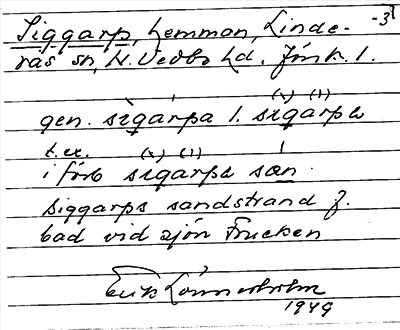 Siggarp, hemman, Linde- -3
rås sn, N. Vedbo hd. Jönk. l.
gen. sɩgarpa l. sɩgarpa
t.ex.
i förb sɩgarpa san
Siggarps sandstrand f.
bad vid sjön Frucken
Erik
1949